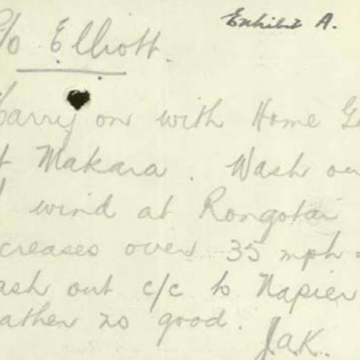 Exhibit A.
P/o Elliott.
Carry on with Home G
at Makara. Wash ou
if wind at Rongotai
creases over 35 mph
ash out c/c to Napier
eather no good.
J.a.K.